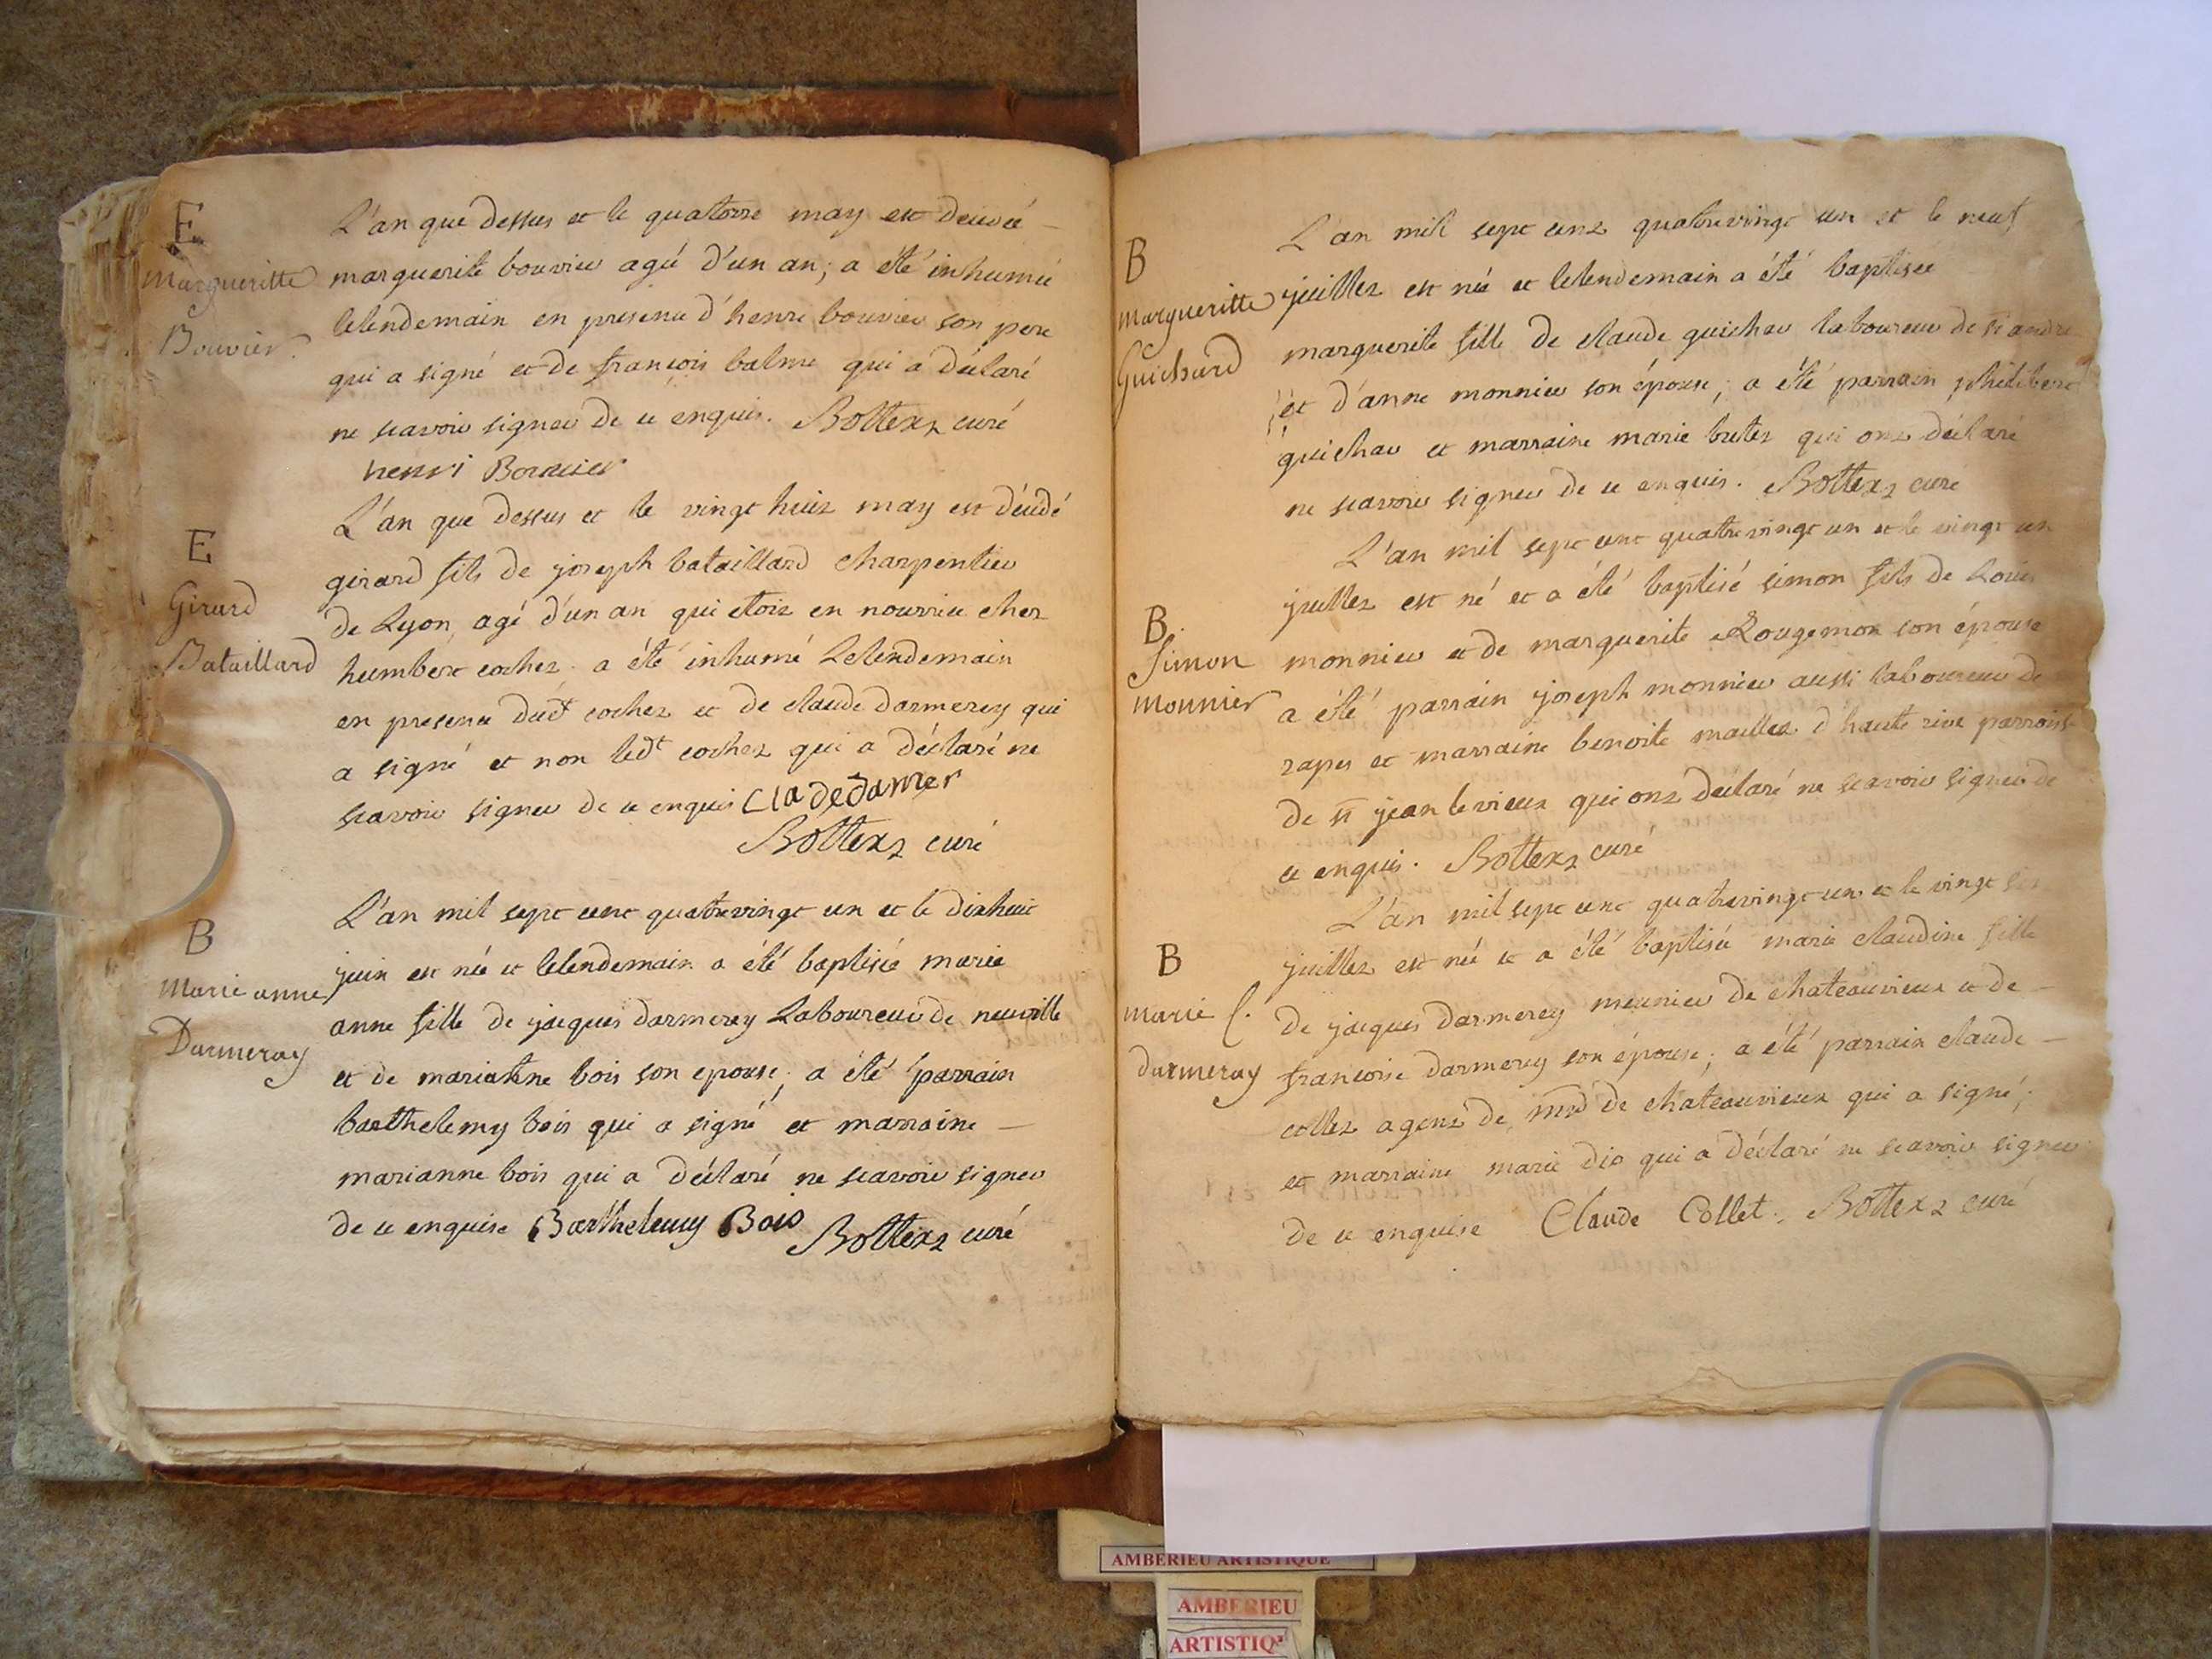 E
Margueritte
Bouvier
L'an que dessus et le quatorze may est décédé
marguerite bouvier agé d'un an; a été inhumé
lelendemain en presence d'henri bouvier son pere
qui a signé et de françois balme qui a déclaré
ne scavoir signer de ce enquis. Bottex curé
henri Bouvier
E
Girard
Bataillard
L'an que dessus et le vingt huit may est décédé
girard fils de joseph bataillard charpentier
de Lyon, agé d'un an qui etoit en nourrice chez
humbert cochet, a été inhumé Lelendemain
en presence dudt cochet et de claude darmerey qui
a signé et non ledt cochet qui a déclaré ne
scavoir signer de ce enquis
Bottex curé
B
Marie anne
Darmeray
L'an mil sept cent quatrevingt un et le dixhuit
juin est née et lelendemain a été baptisée marie
anne fille de jacques darmerey Laboureur de neuville
et de marianne bois son epouse; a été parrain
barthelemy bois qui a signé et marraine
marianne bois qui a déclaré ne scavoir signer
de ce enquise Barthelemy Bois Bottex curé
B
Margueritte
Guichard
L'an mil sept cent quatrevingt un et le neuf
juillet est née et lelendemain a été baptisée
marguerite fille de claude guichar laboureur de st andré
et d'anne monnier son épouse; a été parrain philibert
guichar et marraine marie qui ont déclaré
ne scavoir signer de ce enquis. Bottex curé
B
Simon
monnier
L'an mil sept cent quatrevingt un et le vingt un
juillet est né et a été baptisé simon fils de Louis
monnier et de marguerite Rougemon son épouse
a été parrain joseph monnier aussi laboureur de
rapes et marraine benoite maillet d'haute rive parroisse
de st jean le vieux qui ont déclaré ne scavoir signer de
ce enquis. Bottex curé
B
marie C.
darmeray
L'an mil sept cent quatrevingt un et le vingt
juillet est née et a été baptisée marie claudine fille
de jacques darmerey meunier de chateauvieux et de
francoise darmerey son épouse; a été parrain claude
collet agent de de chateauvieux qui a signé;
et marraine marie dio qui a déclaré ne scavoir signer
de ce enquise Claude Collet. Bottex curé
AMBERIEU ARTISTIQUE
AMBERIEU
ARTISTIQ